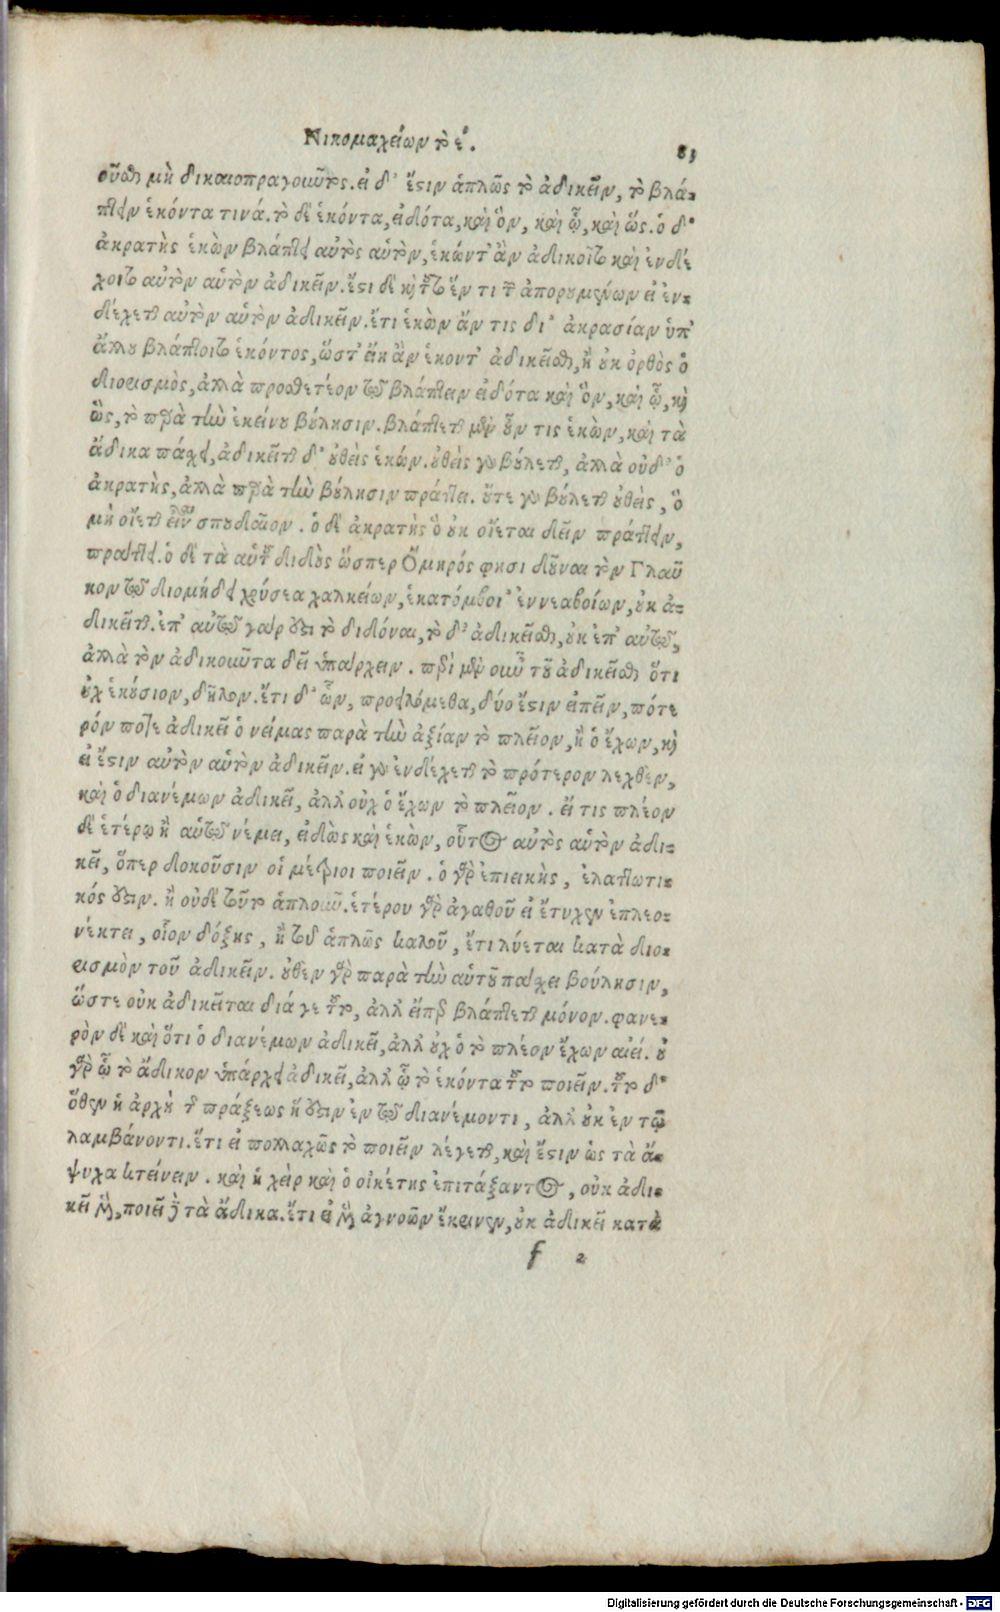 Νικομαχείων τὸ ε΄. 83
οῦσθαι μὴ δικαιοπραγοῦντος. εἰ δ' ἔστιν ἁπλῶς τὸ ἀδικεῖν, τὸ βλά-
πτειν ἑκόντα τινά. τὸ δὲ ἑκόντα, εἰδότα, καὶ ὃν, καὶ ᾧ, καὶ ὥς. ὁ δ'
ἀκρατὴς ἑκὼν βλάπτει αὐτὸς αὑτὸν, ἑκών τ' ἂν ἀδικοῖτο καὶ ἐνδέ
χοιτο αὐτὸν αὑτὸν ἀδικεῖν. ἔστι δὲ καὶ τοῦτο ἕν τι τῶν ἀπορουμένων εἰ ἐν-
δέχεται αὐτὸν αὑτὸν ἀδικεῖν. ἔτι ἑκὼν ἄν τις δι' ἀκρασίαν ὑπ'
ἄλλου βλάπτοιτο ἑκόντος, ὥστ' εἴη ἂν ἑκόντ' ἀδικεῖσθαι, ἢ οὐκ ὀρθὸς ὁ
διορισμὸς, ἀλλὰ προσθετέον τῷ βλάπτειν εἰδότα καὶ ὃν, καὶ ᾧ, καὶ
ὣς, τὸ παρὰ τὴν ἐκείνου βούλησιν. βλάπτεται μὲν οὖν τις ἑκὼν, καὶ τὰ
ἄδικα πάσχει, ἀδικεῖται δ' οὐθεὶς ἑκών. οὐθεὶς γὰρ βούλεται, ἀλλὰ οὐδ' ὁ
ἀκρατὴς, ἀλλὰ παρὰ τὴν βούλησιν πράττει. οὔτε γὰρ βούλεται οὐθεὶς, ὃ
μὴ οἴεται εἶναι σπουδαῖον. ὁ δὲ ἀκρατὴς ὃ οὐκ οἴεται δεῖν πράττειν,
πράττει. ὁ δὲ τὰ αὑτοῦ διδοὺς ὥσπερ Ὅμηρός φησι δοῦναι τὸν Γλαῦ
κον τῷ διομήδει χρύσεα χαλκείων, ἑκατόμβοι' ἐννεαβοίων, οὐκ ἀ-
δικεῖται. ἐπ' αὐτῷ γάρ ἐστι τὸ διδόναι, τὸ δ' ἀδικεῖσθαι, οὐκ ἐπ' αὐτῷ,
ἀλλὰ τὸν ἀδικοῦντα δεῖ ὑπάρχειν. περὶ μὲν οὖν τοῦ ἀδικεῖσθαι ὅτι
οὐχ ἑκούσιον, δῆλον. ἔτι δ' ὧν, προειλόμεθα, δύο ἔστιν εἰπεῖν, πότε
ρόν ποτε ἀδικεῖ ὁ νείμας παρὰ τὴν ἀξίαν τὸ πλεῖον, ἢ ὁ ἔχων, καὶ
εἰ ἔστιν αὐτὸν αὑτὸν ἀδικεῖν. εἰ γὰρ ἐνδέχεται τὸ πρότερον λεχθὲν,
καὶ ὁ διανέμων ἀδικεῖ, ἀλλ' οὐχ ὁ ἔχων τὸ πλεῖον. εἴ τις πλέον
δὲ ἑτέρῳ ἢ αὑτῷ νέμει, εἰδὼς καὶ ἑκὼν, οὗτος αὐτὸς αὑτὸν ἀδι-
κεῖ, ὅπερ δοκοῦσιν οἱ μέτριοι ποιεῖν. ὁ γὰρ ἐπιεικὴς, ἐλαττωτι-
κός ἐστιν. ἢ οὐδὲ τοῦτο ἁπλοῦν. ἑτέρου γὰρ ἀγαθοῦ εἰ ἔτυχεν ἐπλεο-
νέκτει, οἷον δόξης, ἢ τοῦ ἁπλῶς καλοῦ, ἔτι λύεται κατὰ διο-
ρισμὸν τοῦ ἀδικεῖν. οὐθὲν γὰρ παρὰ τὴν αὑτοῦ πάσχει βούλησιν,
ὥστε οὐκ ἀδικεῖται διά γε τοῦτο, ἀλλ' εἴπερ βλάπτεται μόνον. φανε-
ρὸν δὲ καὶ ὅτι ὁ διανέμων ἀδικεῖ, ἀλλ' οὐχ ὁ τὸ πλέον ἔχων αἰεί. οὐ
γὰρ ᾧ τὸ ἄδικον ὑπάρχει ἀδικεῖ, ἀλλ' ᾧ τὸ ἑκόντα τοῦτο ποιεῖν. τοῦτο δ'
ὅθεν ἡ ἀρχὴ τῆς πράξεως ἥ ἐστιν ἐν τῷ διανέμοντι, ἀλλ' οὐκ ἐν τῷ
λαμβάνοντι. ἔτι εἰ πολλαχῶς τὸ ποιεῖν λέγεται, καὶ ἔστιν ὡς τὰ ἄ-
ψυχα κτείνειν. καὶ ἡ χεὶρ καὶ ὁ οἰκέτης ἐπιτάξαντος, οὐκ ἀδι-
κεῖ μὲν, ποιεῖ δὲ τὰ ἄδικα. ἔτι εἰ μὲν ἀγνοῶν ἔκρινεν, οὐκ ἀδικεῖ κατὰ
f 2
Digitalisierung gefördert durch die Deutsche Forschungsgemeinschaft - DFG